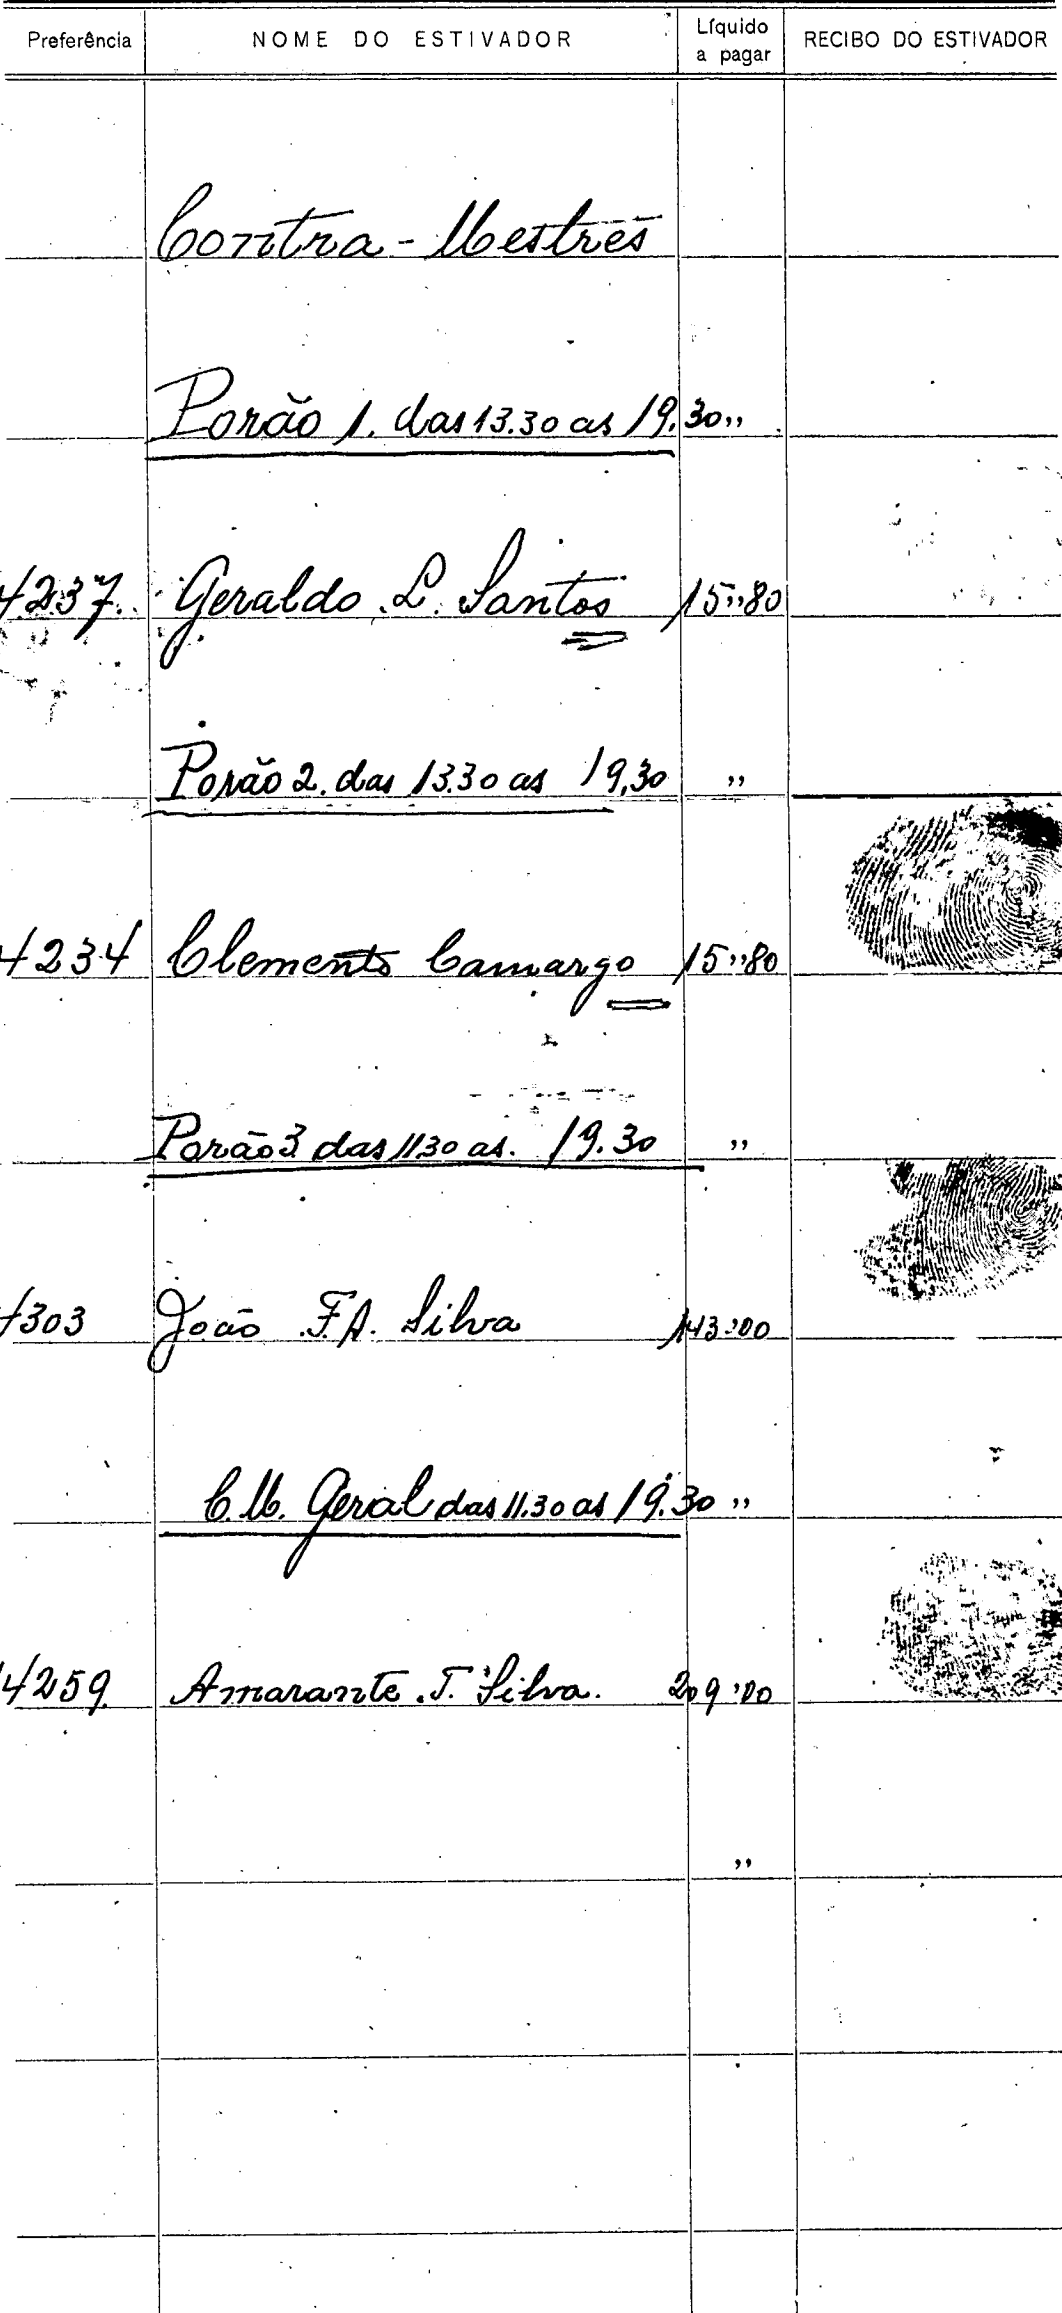 Preferência NOME DO ESTIVADOR Líquido a pagar RECIBO DO ESTIVADOR
Contra-Mestres
Porão 1. das 13.30 as 19.30 ,,
4237. Geraldo L. Santos 15,,80
Porão 2. das 13.30 as 19,30 ,,
4234 Clemento Camargo 15,,80
Porão 3 das 11 30 as. 19.30 ,,
4303 João F.A. Silva 143,00
C.M. Geral das 11.30 as 19.30 ,,
4259. Amarante .T. Silva. 209,00
,,